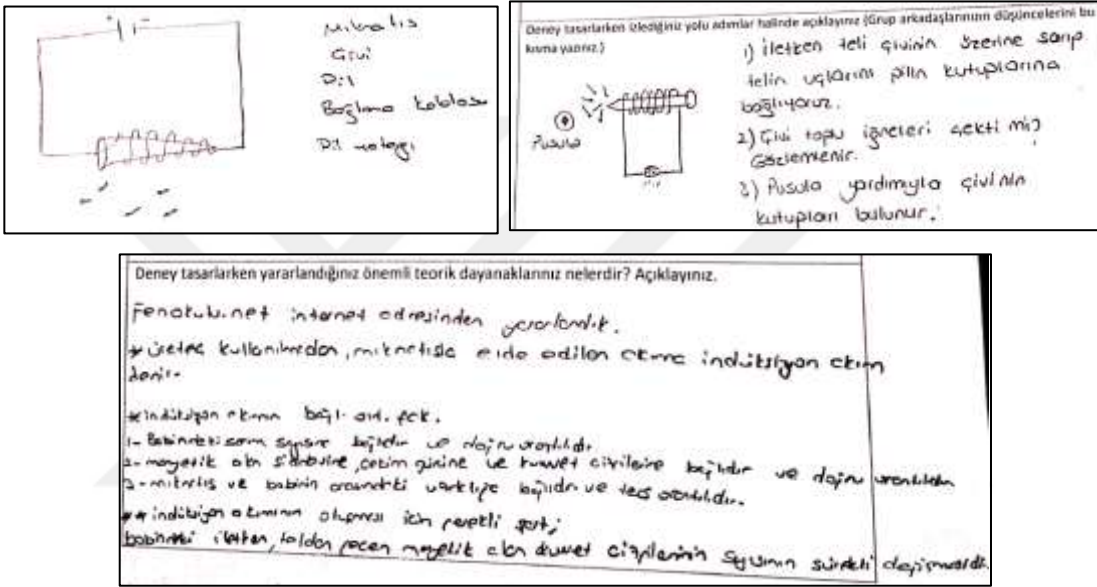 Mıknatıs
Çivi
Pil
Bağlama kablosu
Pil yatağı
Deney tasarlarken izlediğiniz yolu adımlar halinde açıklayınız (Grup arkadaşlarınızın düşüncelerini bu
kısma yazınız.)
1) iletken teli çivinin üzerine sarıp
telin uçlarını pilin kutuplarına
bağlıyoruz.
2) Çivi toplu iğneleri çekti mi?
Gözlemlenir.
3) Pusula yardımıyla çivinin
kutupları bulunur.
Pusula
Pil
Deney tasarlarken yararlandığınız önemli teorik dayanaklarınız nelerdir? Açıklayınız.
Fenokulu.net internet adresinden yararlandık.
* üreteç kullanılmadan, mıknatısla elde edilen akıma indüksiyon akım
denir.
* indüksiyon akımın bağlı old. fak.
1- Bobindeki sarım sayısına bağlıdır ve doğru orantılıdır.
2- magnetik alan şiddetine, çekim gücüne ve kuvvet çizgilerine bağlıdır ve doğru orantılıdır
3- mıknatıs ve bobinin arasındaki uzaklığa bağlıdır ve ters orantılıdır.
** indüksiyon akımının oluşması için gerekli şart;
bobindeki iletken, telden geçen magnetik alan kuvvet çizgilerinin sayısının sürekli değişmesidir.